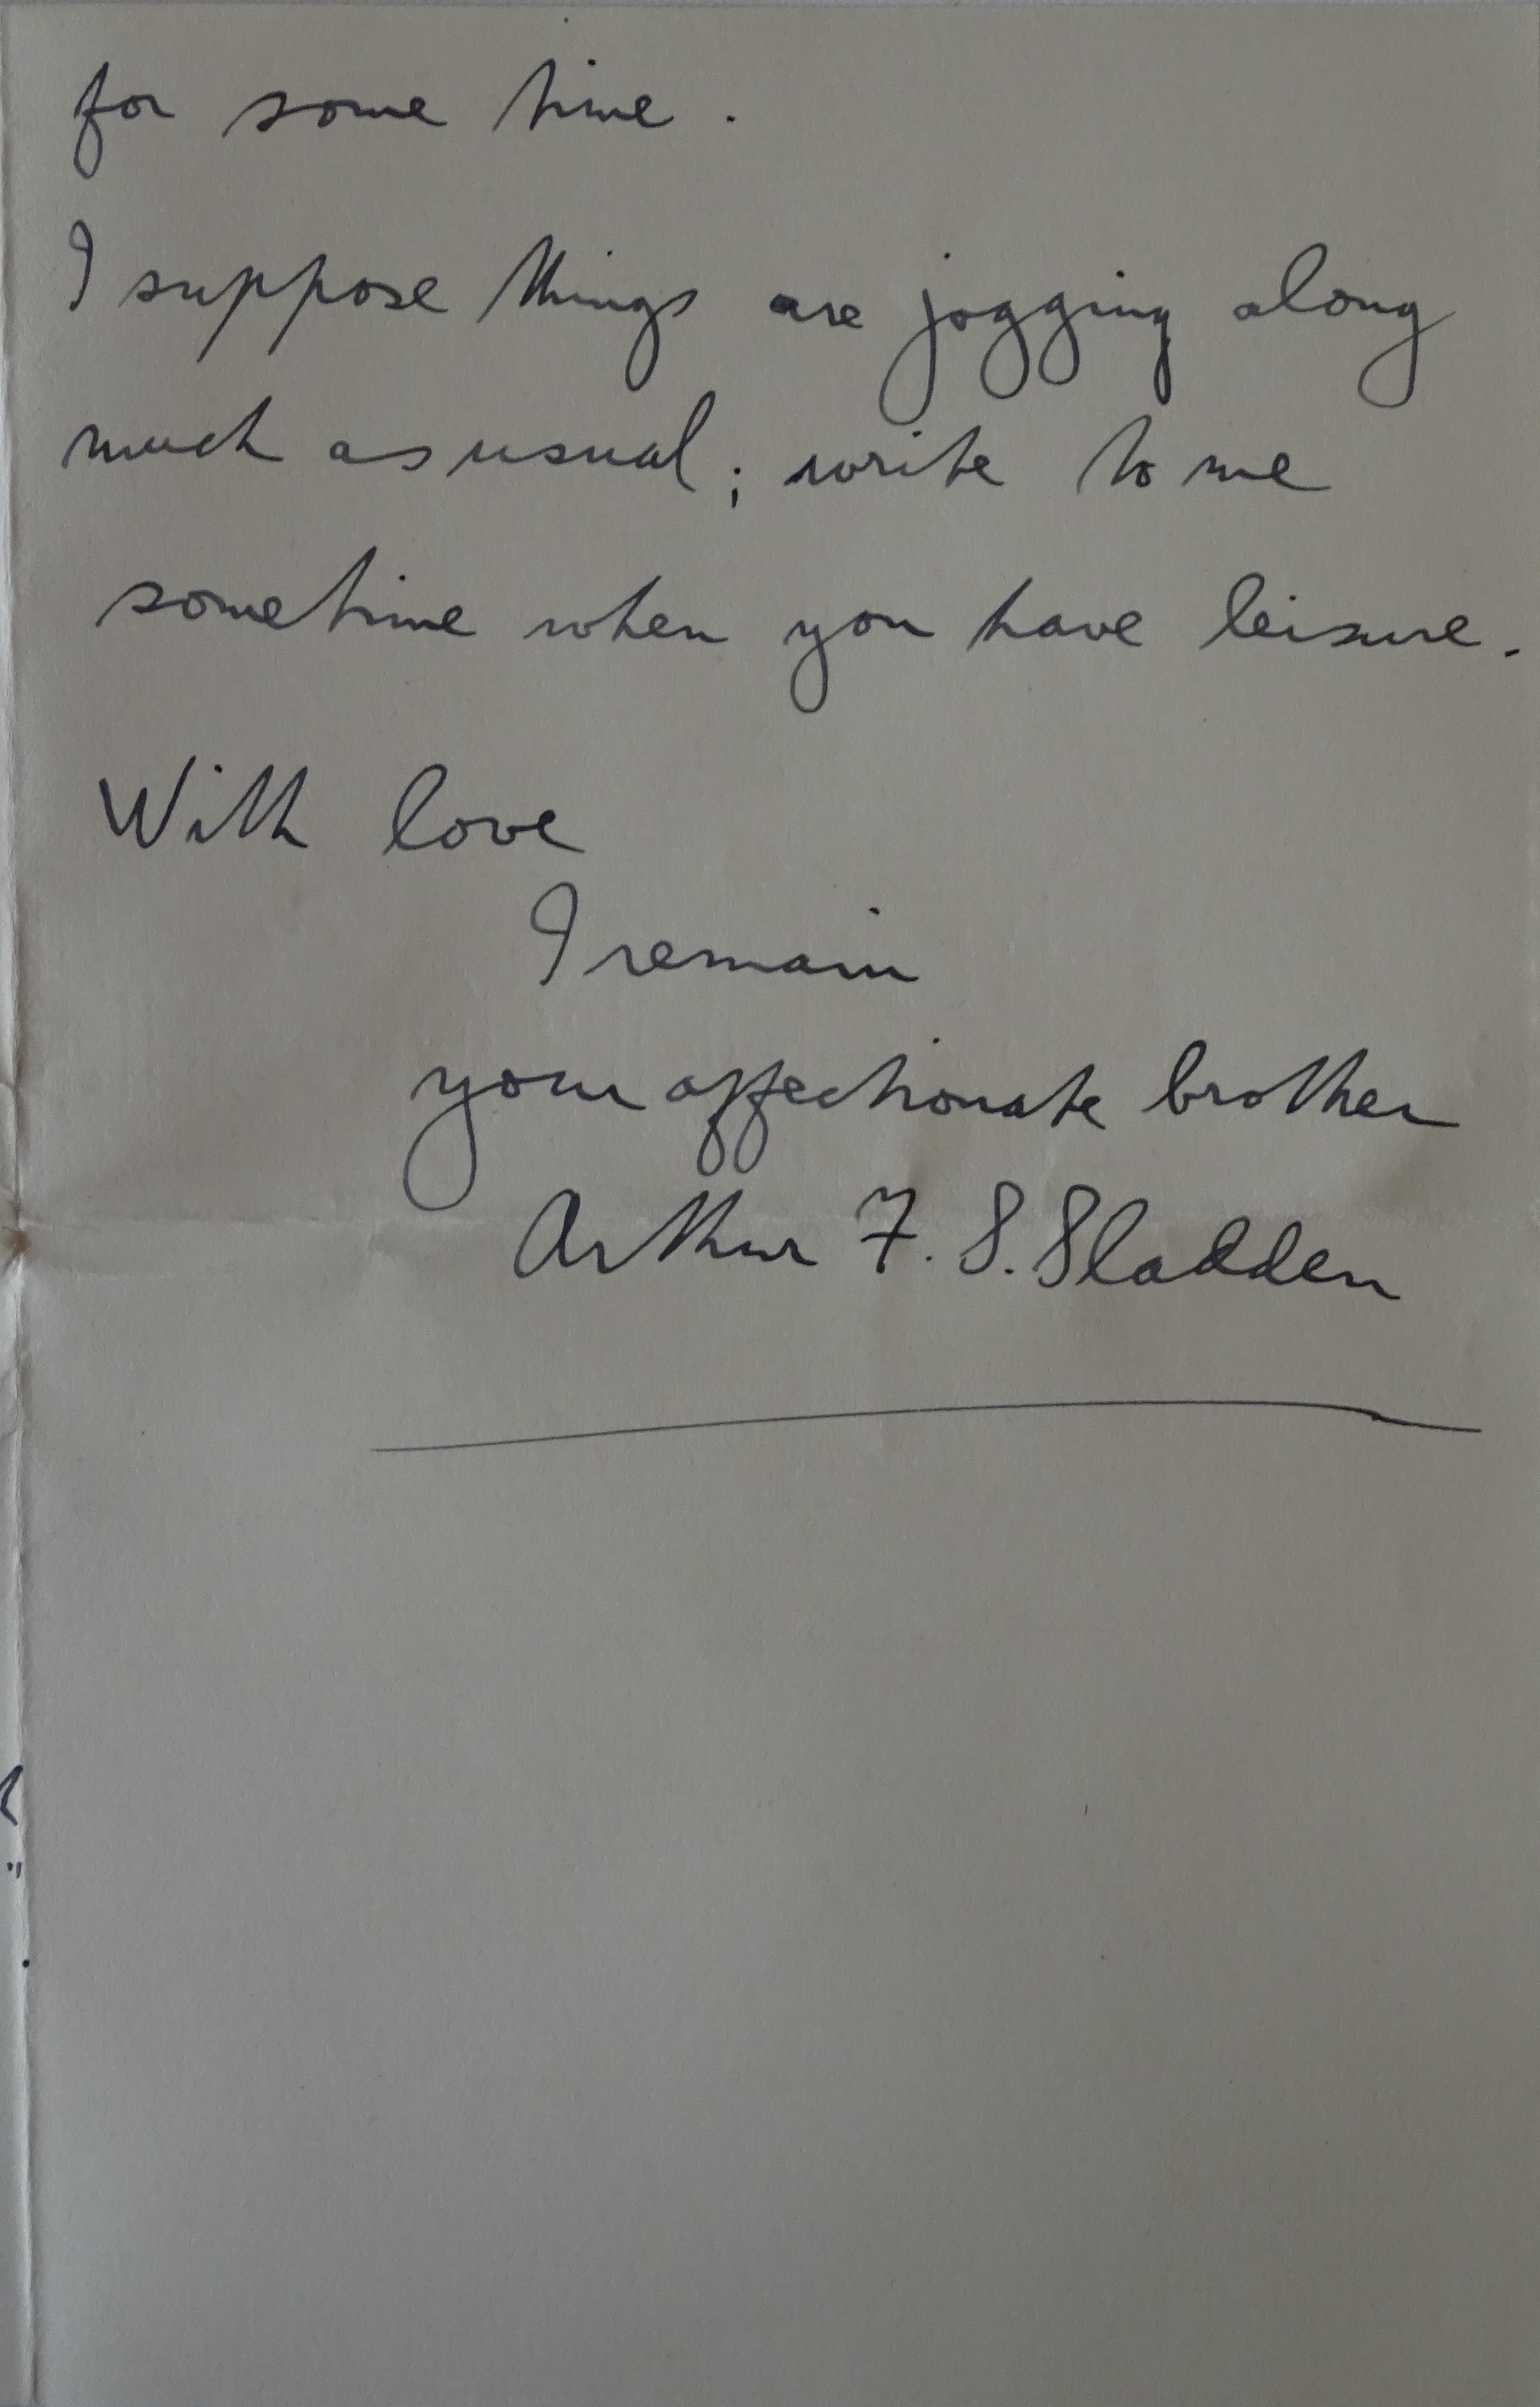 for some time.
I suppose things are jogging along
much as usual; write to me
sometime when you have leisure.
With love
I remain
your affectionate brother
Arthur F. S. Sladden